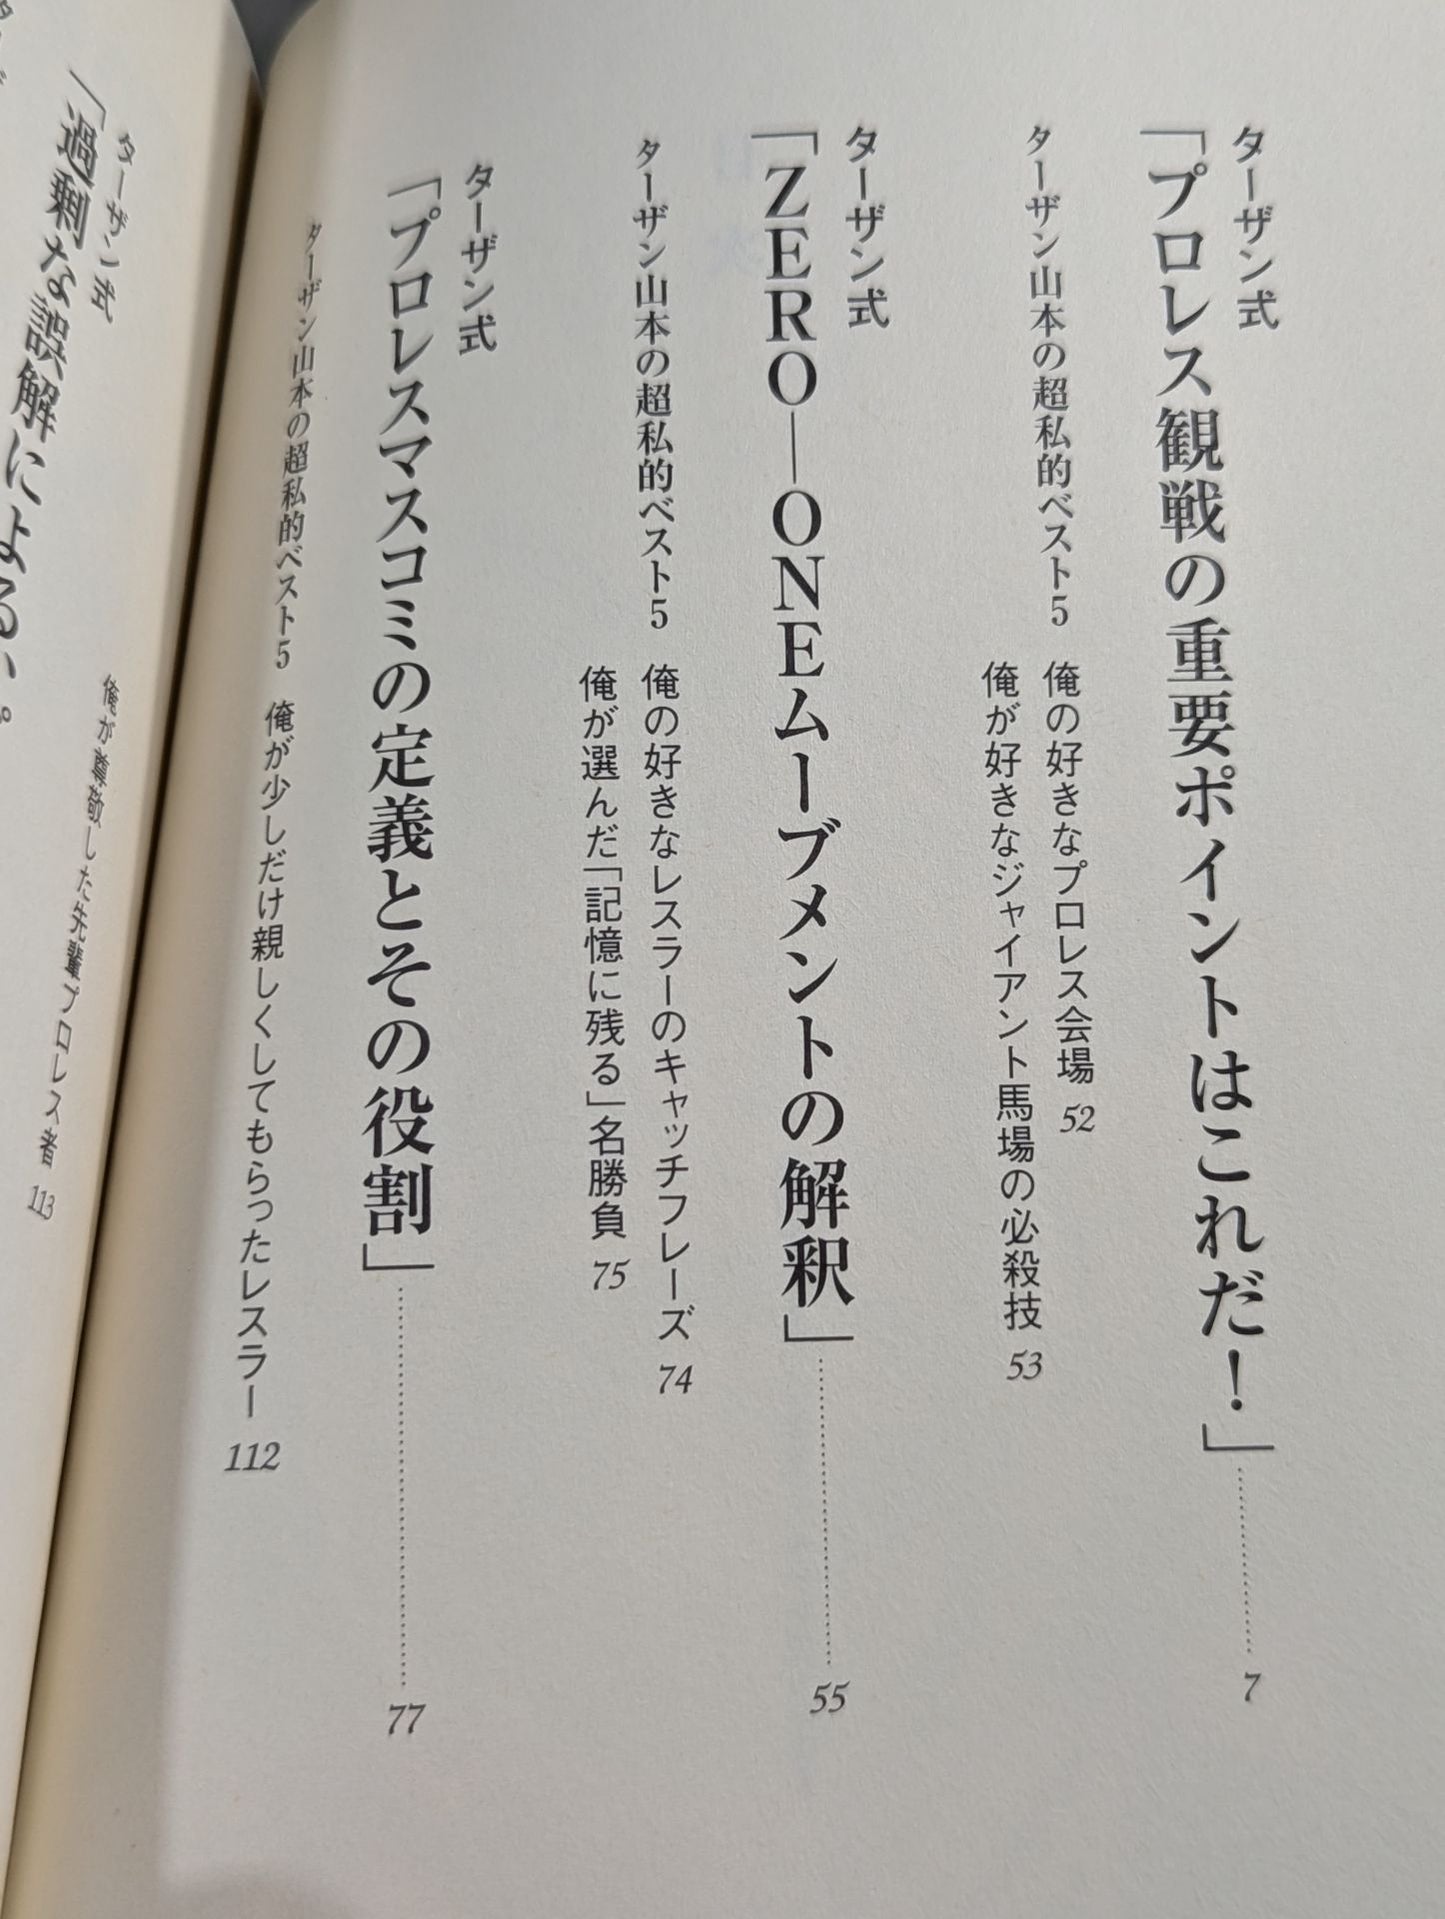 ターザン式
「プロレス観戦の重要ポイントはこれだ！」 7
ターザン山本の超私的ベスト5 俺の好きなプロレス会場 52
俺が好きなジャイアント馬場の必殺技 53
ターザン式
「ZERO―ONEムーブメントの解釈」 55
ターザン山本の超私的ベスト5 俺の好きなレスラーのキャッチフレーズ 74
俺が選んだ「記憶に残る」名勝負 75
ターザン式
「プロレスマスコミの定義とその役割」 77
ターザン山本の超私的ベスト5 俺が少しだけ親しくしてもらったレスラー 112
俺が尊敬した先輩プロレス者 113
ターザン式
「過剰な誤解による